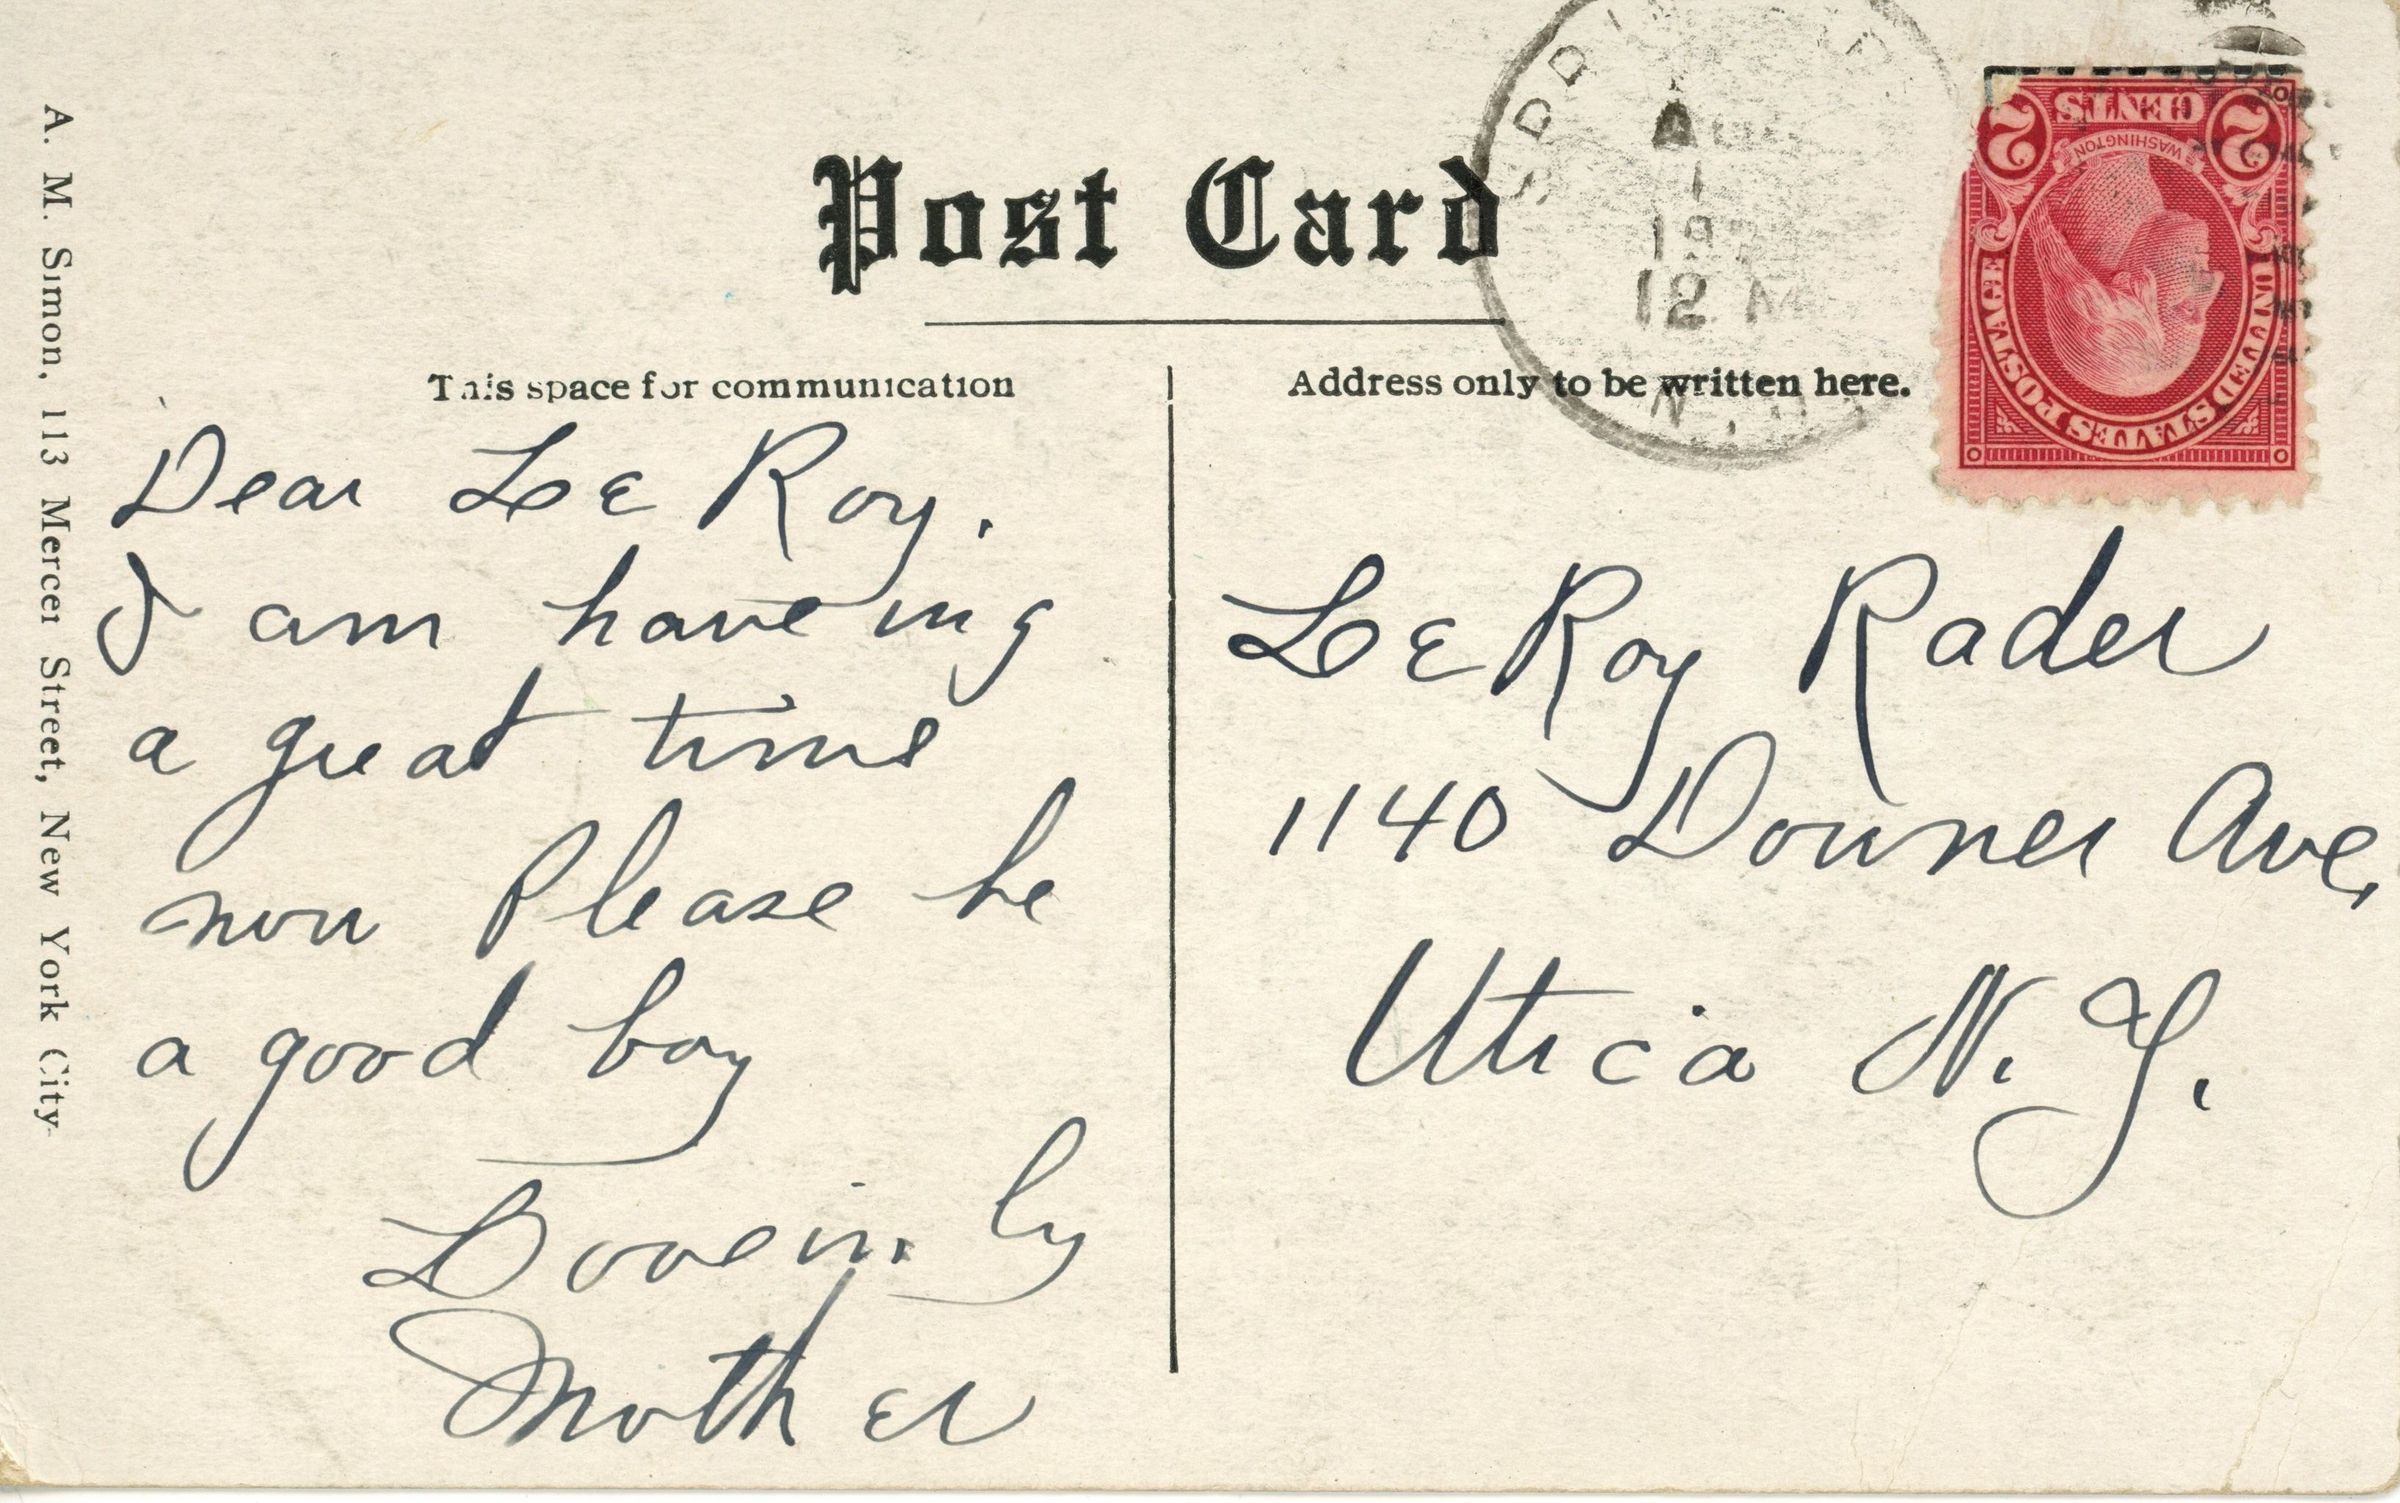 Post Card
This space for communication
Address only to be written here.
A. M. Simon, 113 Mercer Street, New York City
Dear Le Roy.
I am haveing
a great time
now Please be
a good boy
Loveingly
Mother
Le Roy Rader
1140 Downer Ave,
Utica N. Y.
AUG
1
12 M
N.Y.
2 CENTS 2
WASHINGTON
UNITED STATES POSTAGE